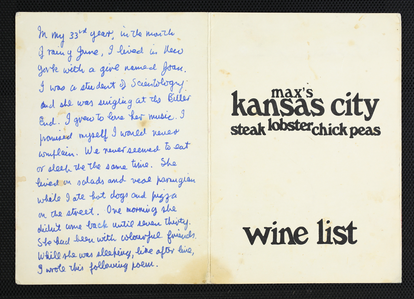 In my 33rd year, in the month
of rainy June, I lived in New
York with a girl named Joan.
I was a student of Scientology
and she was singing at the Bitter
End. I grew to love her music. I
promised myself I would never
complain. We never seemed to eat
or sleep at the same time. She
lived on salads and veal parmigian
while I ate hot dogs and pizza
on the street. One morning she
didn't come back until seven thirty.
She had been with colourful friends.
While she was sleeping, line after line,
I wrote this following poem.
max's
kansas city
steak lobster chick peas
wine list